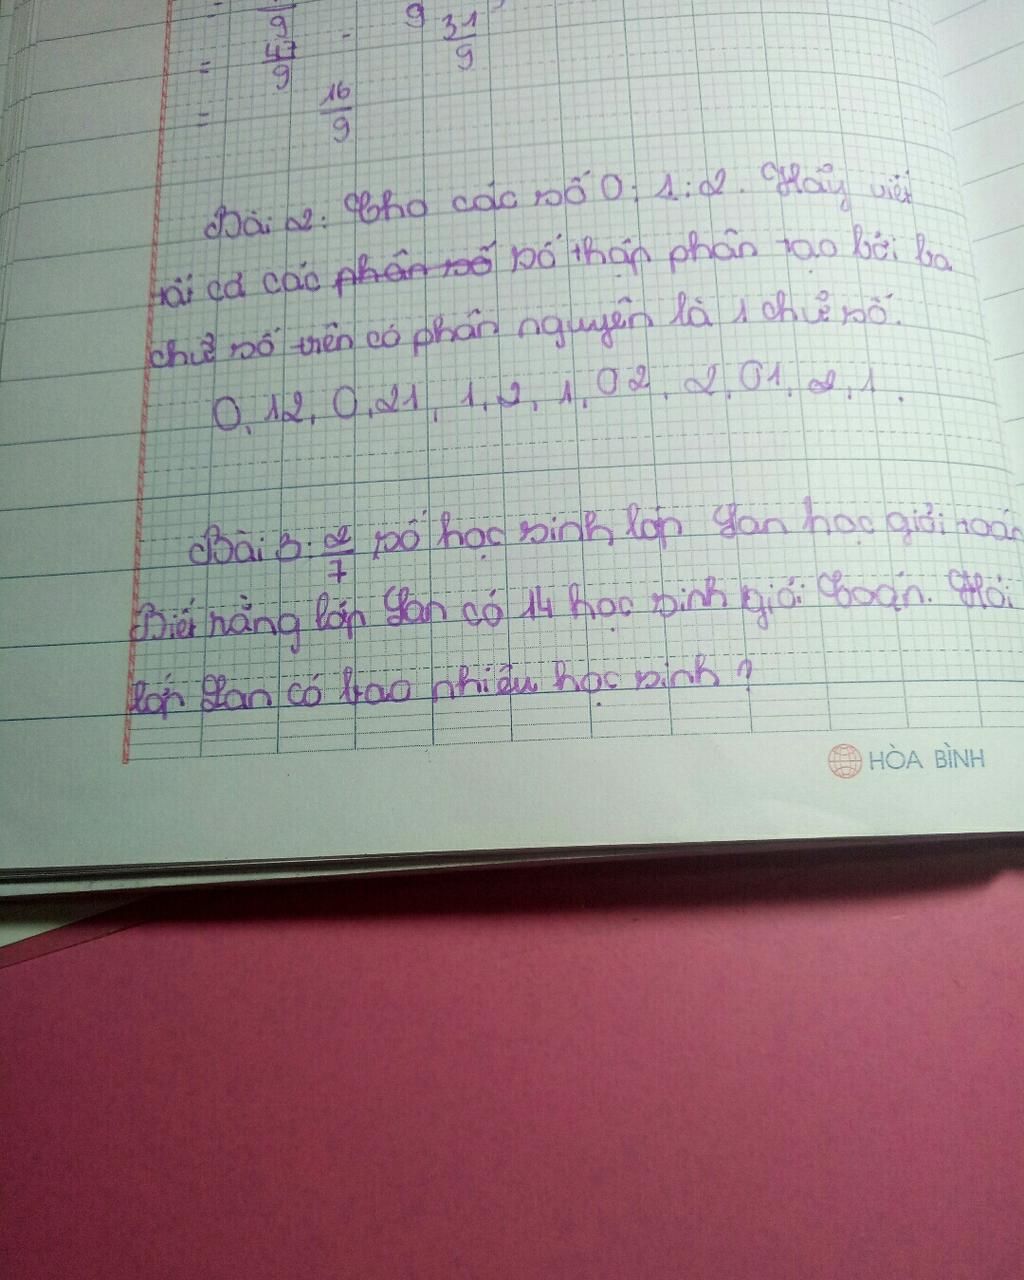 9
9 31
= 47 -
9 9
= 16
9
Bài 2: Cho các số 0; 1; 2. Hãy viết
tất cả các phân số số thập phân tạo bởi ba
chữ số trên có phần nguyên là 1 chữ số.
0,12, 0,21, 1,2, 1,02, 2,01, 2,1.
Bài 3: 2/7 số học sinh lớp Lan học giỏi toán
Biết rằng lớp Lan có 14 học sinh giỏi Toán. Hỏi
lớp Lan có bao nhiêu học sinh ?
HÒA BÌNH